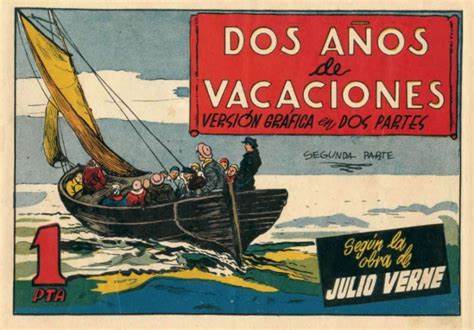 DOS AÑOS
de
VACACIONES
VERSIÓN GRÁFICA en DOS PARTES
SEGUNDA PARTE
1
PTA
Según la
obra de
JULIO VERNE